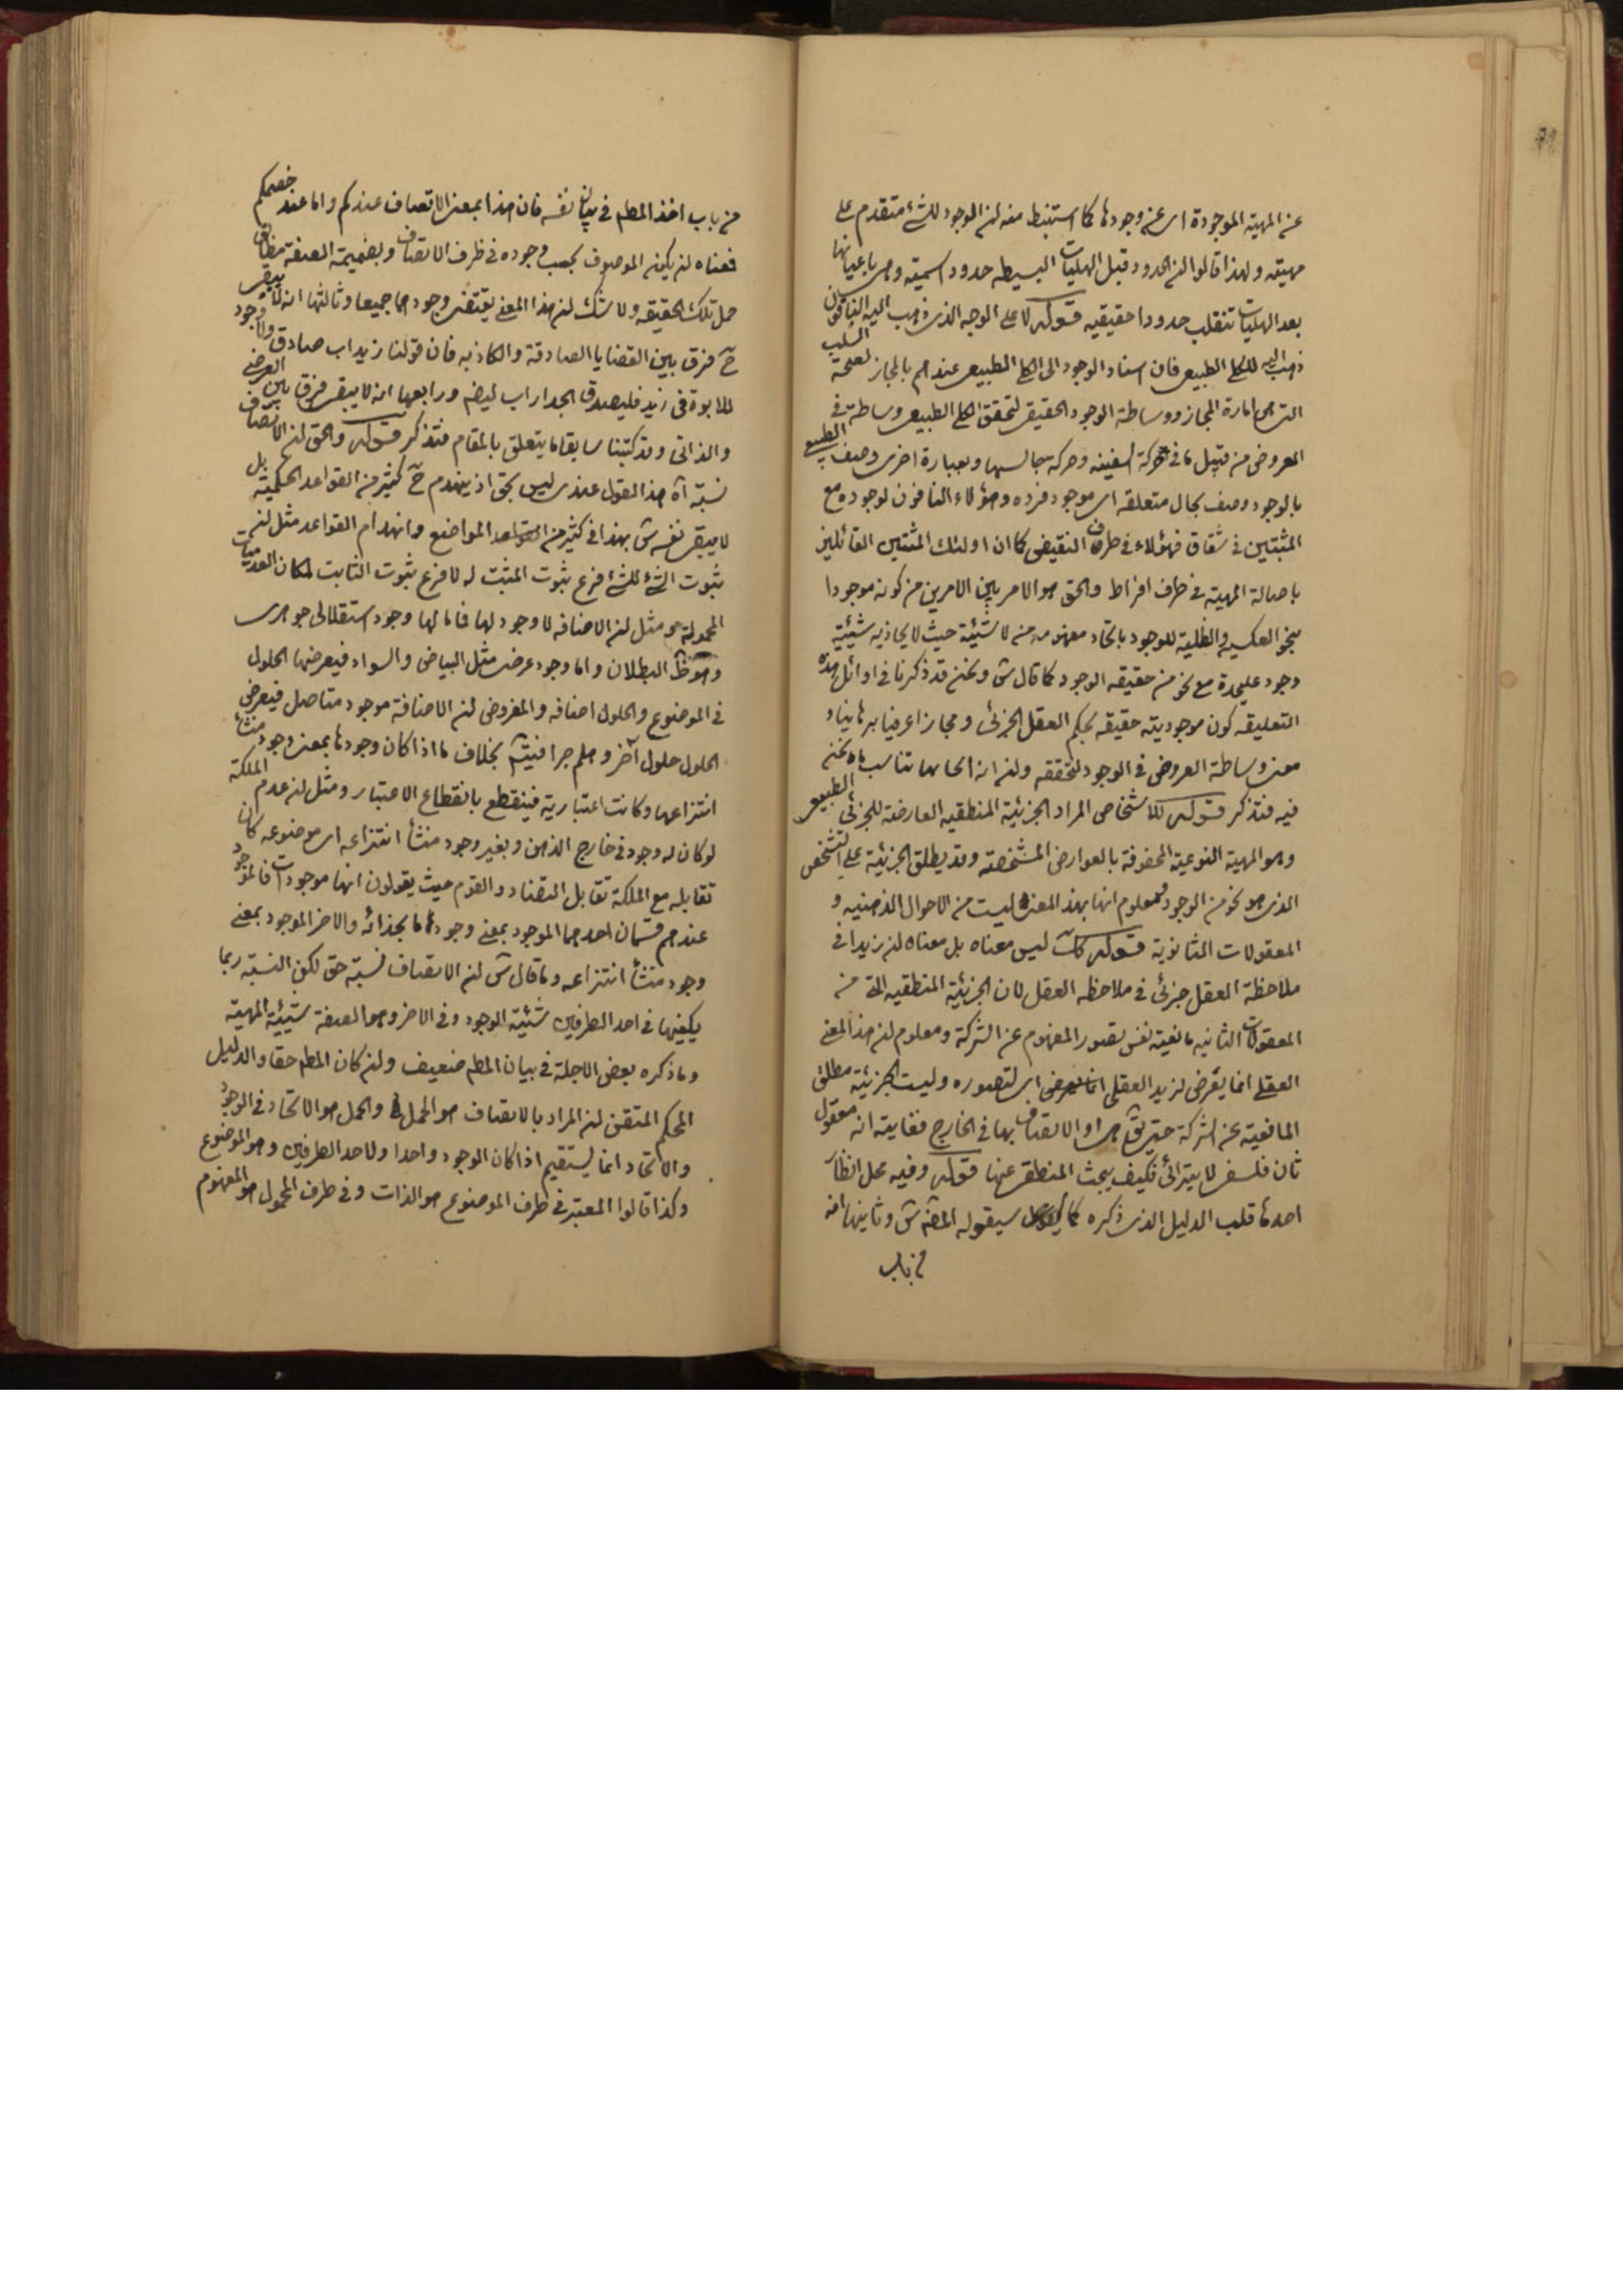 عن المهية الموجودة اى عن وجودها كما استنبط منه ان الموجود للشئ متقدم على
مهيته ولهذا قالوا ان الحدود قبل الهليات البسيطه حدود اسميته وهى باعيانها
بعد الهليات تنقلب حدودا حقيقيه قوله لا على الوجه الذى ذهب اليه النافون
للكلى الطبيعى فان اسناد الوجود الى الكلى الطبيعى عندهم بالمجاز لصحة السلب
التى هى امارة المجاز ووساطة الوجود الحقيقى لتحقق الكلى الطبيعى وساطة فى
العروض من قبيل ما فى حركة السفينه وحركة جالسها وبعبارة اخرى وصف الطبيعى
بالوجود وصف بحال متعلقه اى موجود فرده وهؤلاء النافون لوجوده مع
المثبتين فى شقاق فهؤلاء فى طرف النقيض كما ان اولئك المثبتين القائلين
باصالة المهية فى طرف افراط والحق هو الامر بين الامرين من كونه موجودا
بنحو العكسية والظلية للوجود باتحاد مفهوم من لا شيئية حيث لا يحاذيه شيئية
وجود عليحدة مع نحو من حقيقه الوجود كما قال ش ونحن قد ذكرنا فى اوائل هذه
التعليقه كون موجوديته حقيقه بحكم العقل الجزئى ومجازا عرفيا برهانيا و
معنى وساطة العروض فى الوجود لتحققه وان انحاءها تناسب ما نحن
فيه فتذكر قوله للاشخاص المراد الجزئية المنطقيه العارضة للجزئى الطبيعى
وهو المهية النوعية المحفوفة بالعوارض المشخصة وقد يطلق الجزئية على التشخص
الذى هو نحو من الوجود ومعلوم انها بهذا المعنى ليست من الاحوال الذهنيه و
المعقولات الثانوية قوله كانت ليس معناه بل معناه ان زيدا فى
ملاحظة العقل جزئى فى ملاحظه العقل لان الجزئية المنطقيه التى من
المعقولات الثانيه مانعية نفس تصور المفهوم عن الشركة ومعلوم ان هذا المعنى
العقلى انما يعرض لزيد العقلى اى لتصوره وليست الجزئية مطلق
المانعية عن الشركة حتى يق هى او الاتصاف بها فى الخارج فغايته انه معقول
ثان فلسفى لا ميزانى فكيف يبحث المنطقى عنها قوله وفيه محل انظار
احدها قلب الدليل الذى ذكره كما سيقوله المص ش وثانيها انه
من باب
من باب اخذ المطلم فى بيان نفسه فان هذا بمعنى الاتصاف عندكم واما عند خصمكم
فمعناه ان يكون الموصوف بحسب وجوده فى ظرف الاتصاف وبضميمة الصفة مطابق
حمل تلك الحقيقه ولا شك ان هذا المعنى يقتضى وجودهما جميعا وثالثها انه لا يبقى
ح فرق بين القضايا الصادقة والكاذبه فان قولنا زيد اب صادق ولا وجود
للابوة فى زيد فليصدق الجدار اب ايضم ورابعها انه لا يبقى فرق بين العرضى
والذاتى وقد كتبنا سابقا ما يتعلق بالمقام فتذكر قوله والحق ان الاتصاف
نسبة آه هذا القول عندى ليس بحق اذ ينهدم ح كثير من القواعد الحكمية بل
لا يبقى نفسه ش بهذا فى كثير من المواضع وانهدام القواعد مثل ان
ثبوت الشئ للشئ فرع ثبوت المثبت له لا فرع ثبوت الثابت لمكان العدميات
المحمولة ومثل ان الاضافه لا وجود لها فاما لها وجود استقلالى جوهرى
وهو ظ البطلان واما وجود عرضى مثل البياض والسواد فيعرضها الحلول
فى الموضوع والحلول اضافه والمفروض ان الاضافة موجود متاصل فيعرض
الحلول حلول آخر وهلم جرا فيتم بخلاف ما اذا كان وجودها بمعنى وجود منشأ
انتزاعها وكانت اعتبارية فينقطع بانقطاع الاعتبار ومثل ان عدم الملكة
لو كان له وجود فى خارج الذهن وبغير وجود منشأ انتزاعه اى موضوعه كان
تقابله مع الملكة تقابل التضاد والقوم حيث يقولون انها موجودات فالموجود
عندهم قسمان احدهما الموجود بمعنى وجود ما بحذائه والاخر الموجود بمعنى
وجود منشأ انتزاعه وما قال ش ان الاتصاف نسبة حق لكن النسبة ربما
يكفيها فى احد الطرفين شيئية الوجود وفى الاخر وهو الصفة شيئية المهية
وما ذكره بعض الاجلة فى بيان المطلم ضعيف وان كان المطلم حقا والدليل
المحكم المتقن ان المراد بالاتصاف هو الحمل والحمل هو الاتحاد فى الوجود
والاتحاد انما يستقيم اذا كان الوجود واحدا ولاحد الطرفين وهو الموضوع
وكذا قالوا المعتبر فى طرف الموضوع هو الذات وفى طرف المحمول هو المفهوم